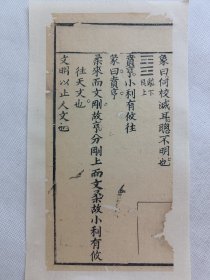 象曰何校滅耳聰不明也
離下
艮上
賁亨小利有攸往
彖曰賁亨
柔來而文剛故亨分剛上而文柔故小利有攸
往天文也
文明以止人文也